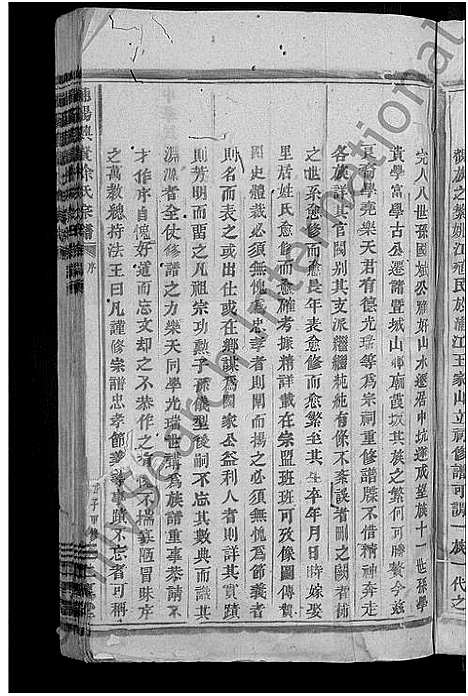 親族之繁姚江
氏族浦江王家山立祠修譜可謂一族一代之
完人八世孫國城公雅好山水遷居中坑遂成望族十一世孫學
貴學富學古公遷諸暨城山鄉廟霞坂其族之繁何可勝贅今茲
裔學堯樂天君有德光瑞等為宗祠重修譜牒不惜精神奔走
各族詳其官閥別其支派繼繼純純有條不紊誤者刪之闕者補
之世系愈修而愈是年表愈修而愈繁至其生卒年月日時嫁娶
里居姓氏愈修而愈確考據精詳載在宗盟班班可攷像圖傳贊
圖史體裁必須無愧為忠孝者則闡而揚之必須無愧為節義者
則名而表之或出仕或在鄉謀為國家公益利人者則詳其實蹟
則芳明而著之凡祖宗功勲子孫儀型後嗣不忘其數典而識其
淵源者全仗修譜之力樂天同學光瑞世講為族譜重事恭請
才作序自愧好道而忘文却之不恭作之
不揣寡陋冒昧序
之萬教總持法王曰凡謹修宗譜忠孝節義等事蹟不忘者可稱
陽興賢徐氏宗譜
序
My Search International